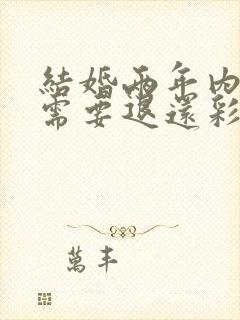 結婚兩年內
需要退還彩
萬丰